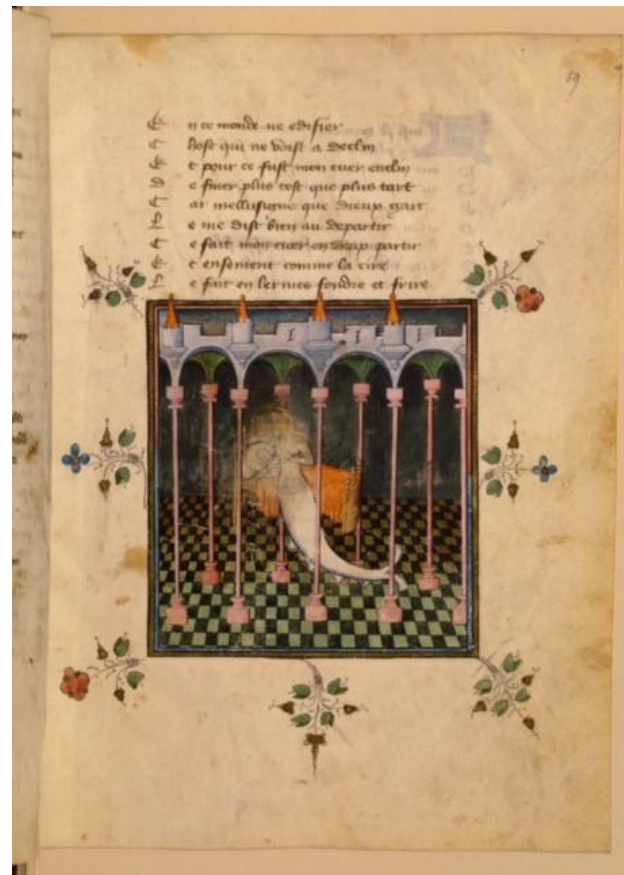 19
En ce monde ne edifier
Chose qui ne voist a declin
Et pour ce fust mon cuer enclin
De finer plus tost que plus tart
Car mellusigne que dieux gart
Le me dist bien au departir
Ce fait mon cuer en deux partir
Et ensement comme la cire
Le fait en lermes fondre et frire